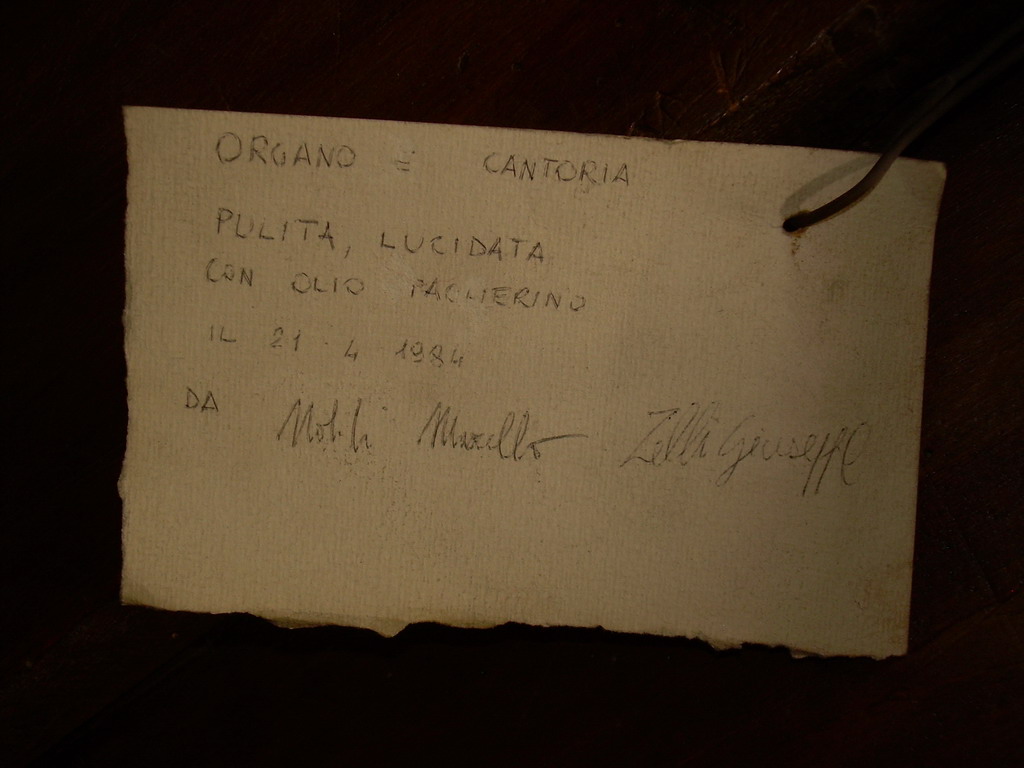 ORGANO E CANTORIA
PULITA, LUCIDATA
CON OLIO PAGLIERINO
IL 21 4 1984
DA Nobili Marcello Zelli Giuseppe